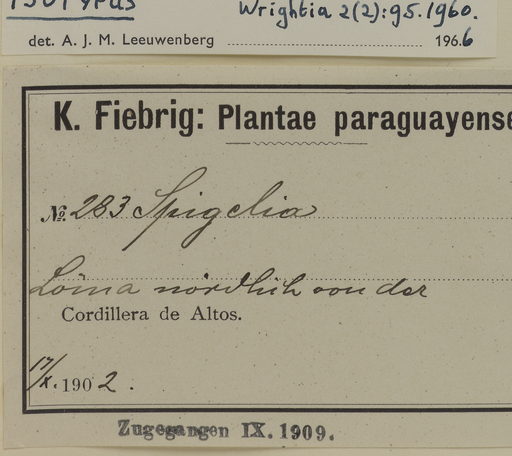 isotypus Wrightia 2(2):95.1960.
det. A. J. M. Leeuwenberg 196.6
K. Fiebrig: Plantae paraguayense
№ 283 Spigelia
Loma nördlich von der
Cordillera de Altos.
17/X. 1902.
Zugegangen IX. 1909.